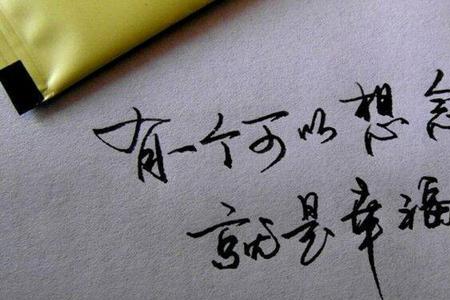 有一个可以想念
就是幸福